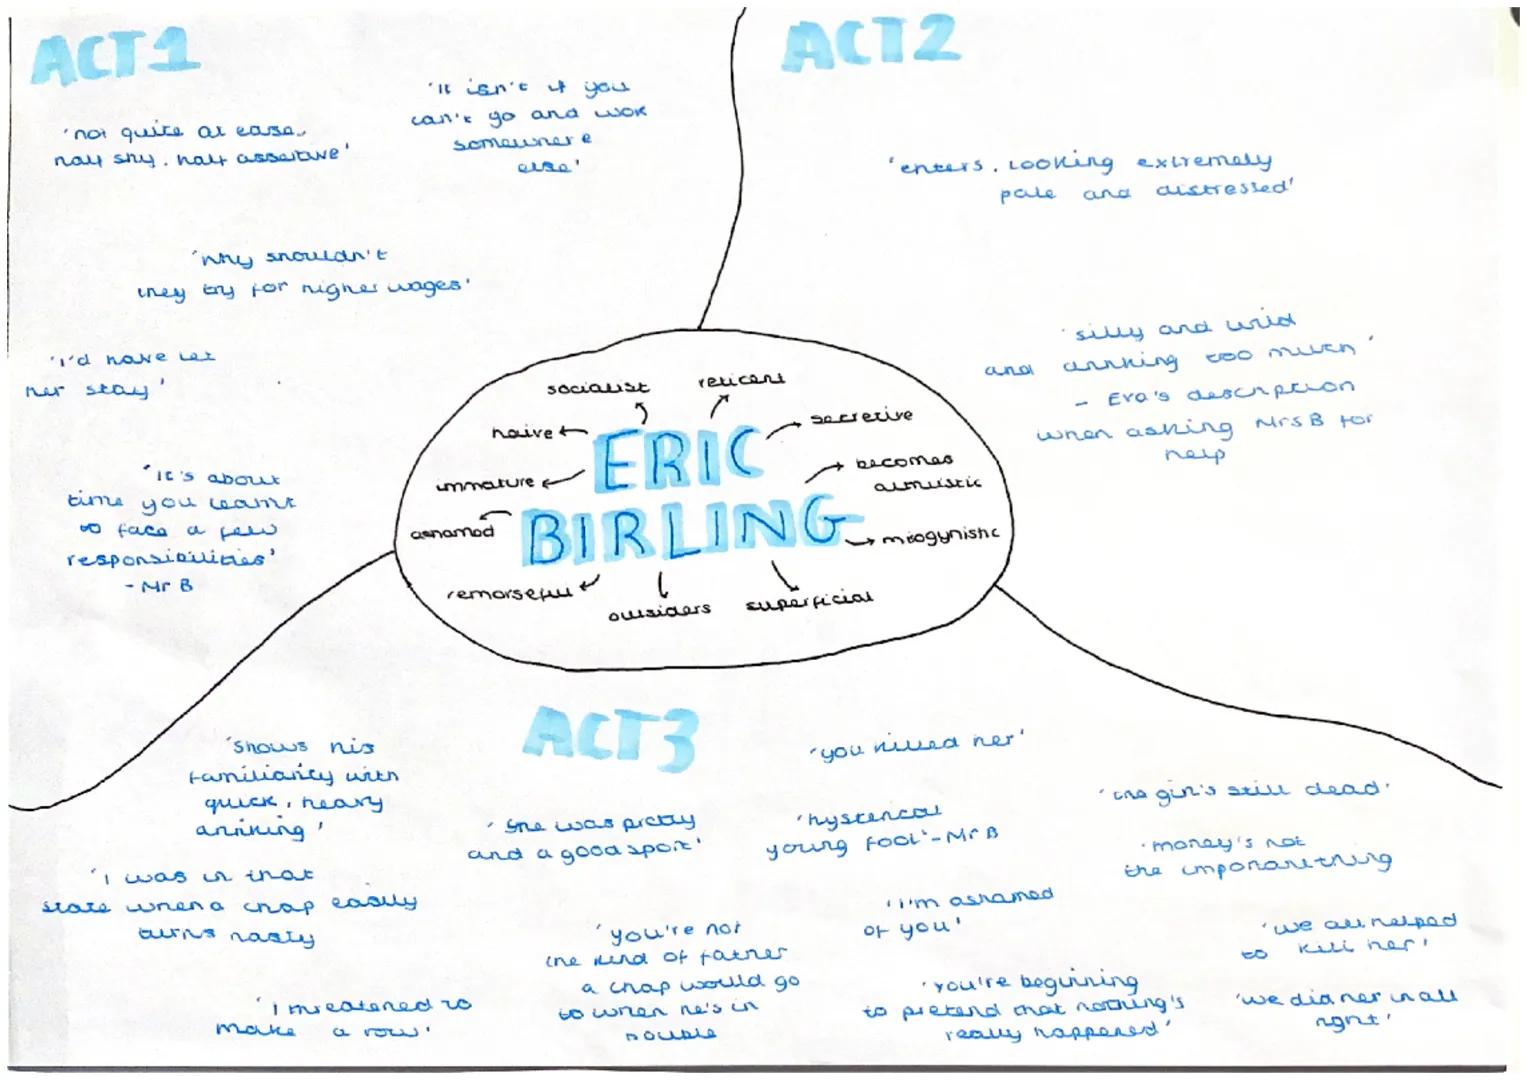 ACT 1
'not quite at ease,
half shy, half assertive'
'It isn't if you
can't go and wok
somewhere
else'
'why shouldn't
they try for higher wages'
'I'd have let
her stay'
'It's about
time you learnt
to face a few
responsibilities'
- Mr B
ACT 2
'enters, looking extremely
pale and distressed'
'silly and wild
and drinking too much'
- Eva's description
when asking Mrs B for
help
socialist
reticent
naive
secretive
ERIC
BIRLING
immature
becomes
altruistic
ashamed
misogynistic
remorseful
outsiders
superficial
ACT 3
'shows his
familiarity with
quick, heavy
drinking'
'I was in that
state when a chap easily
turns nasty
'I threatened to
make a row'
'she was pretty
and a good sport'
'you're not
the kind of father
a chap would go
to when he's in
trouble
'you killed her'
'hysterical
young fool' - Mr B
'I'm ashamed
of you'
'You're beginning
to pretend that nothing's
really happened'
'the girl's still dead'
'money's not
the important thing
'we all helped
to kill her'
'we did her in all
right'